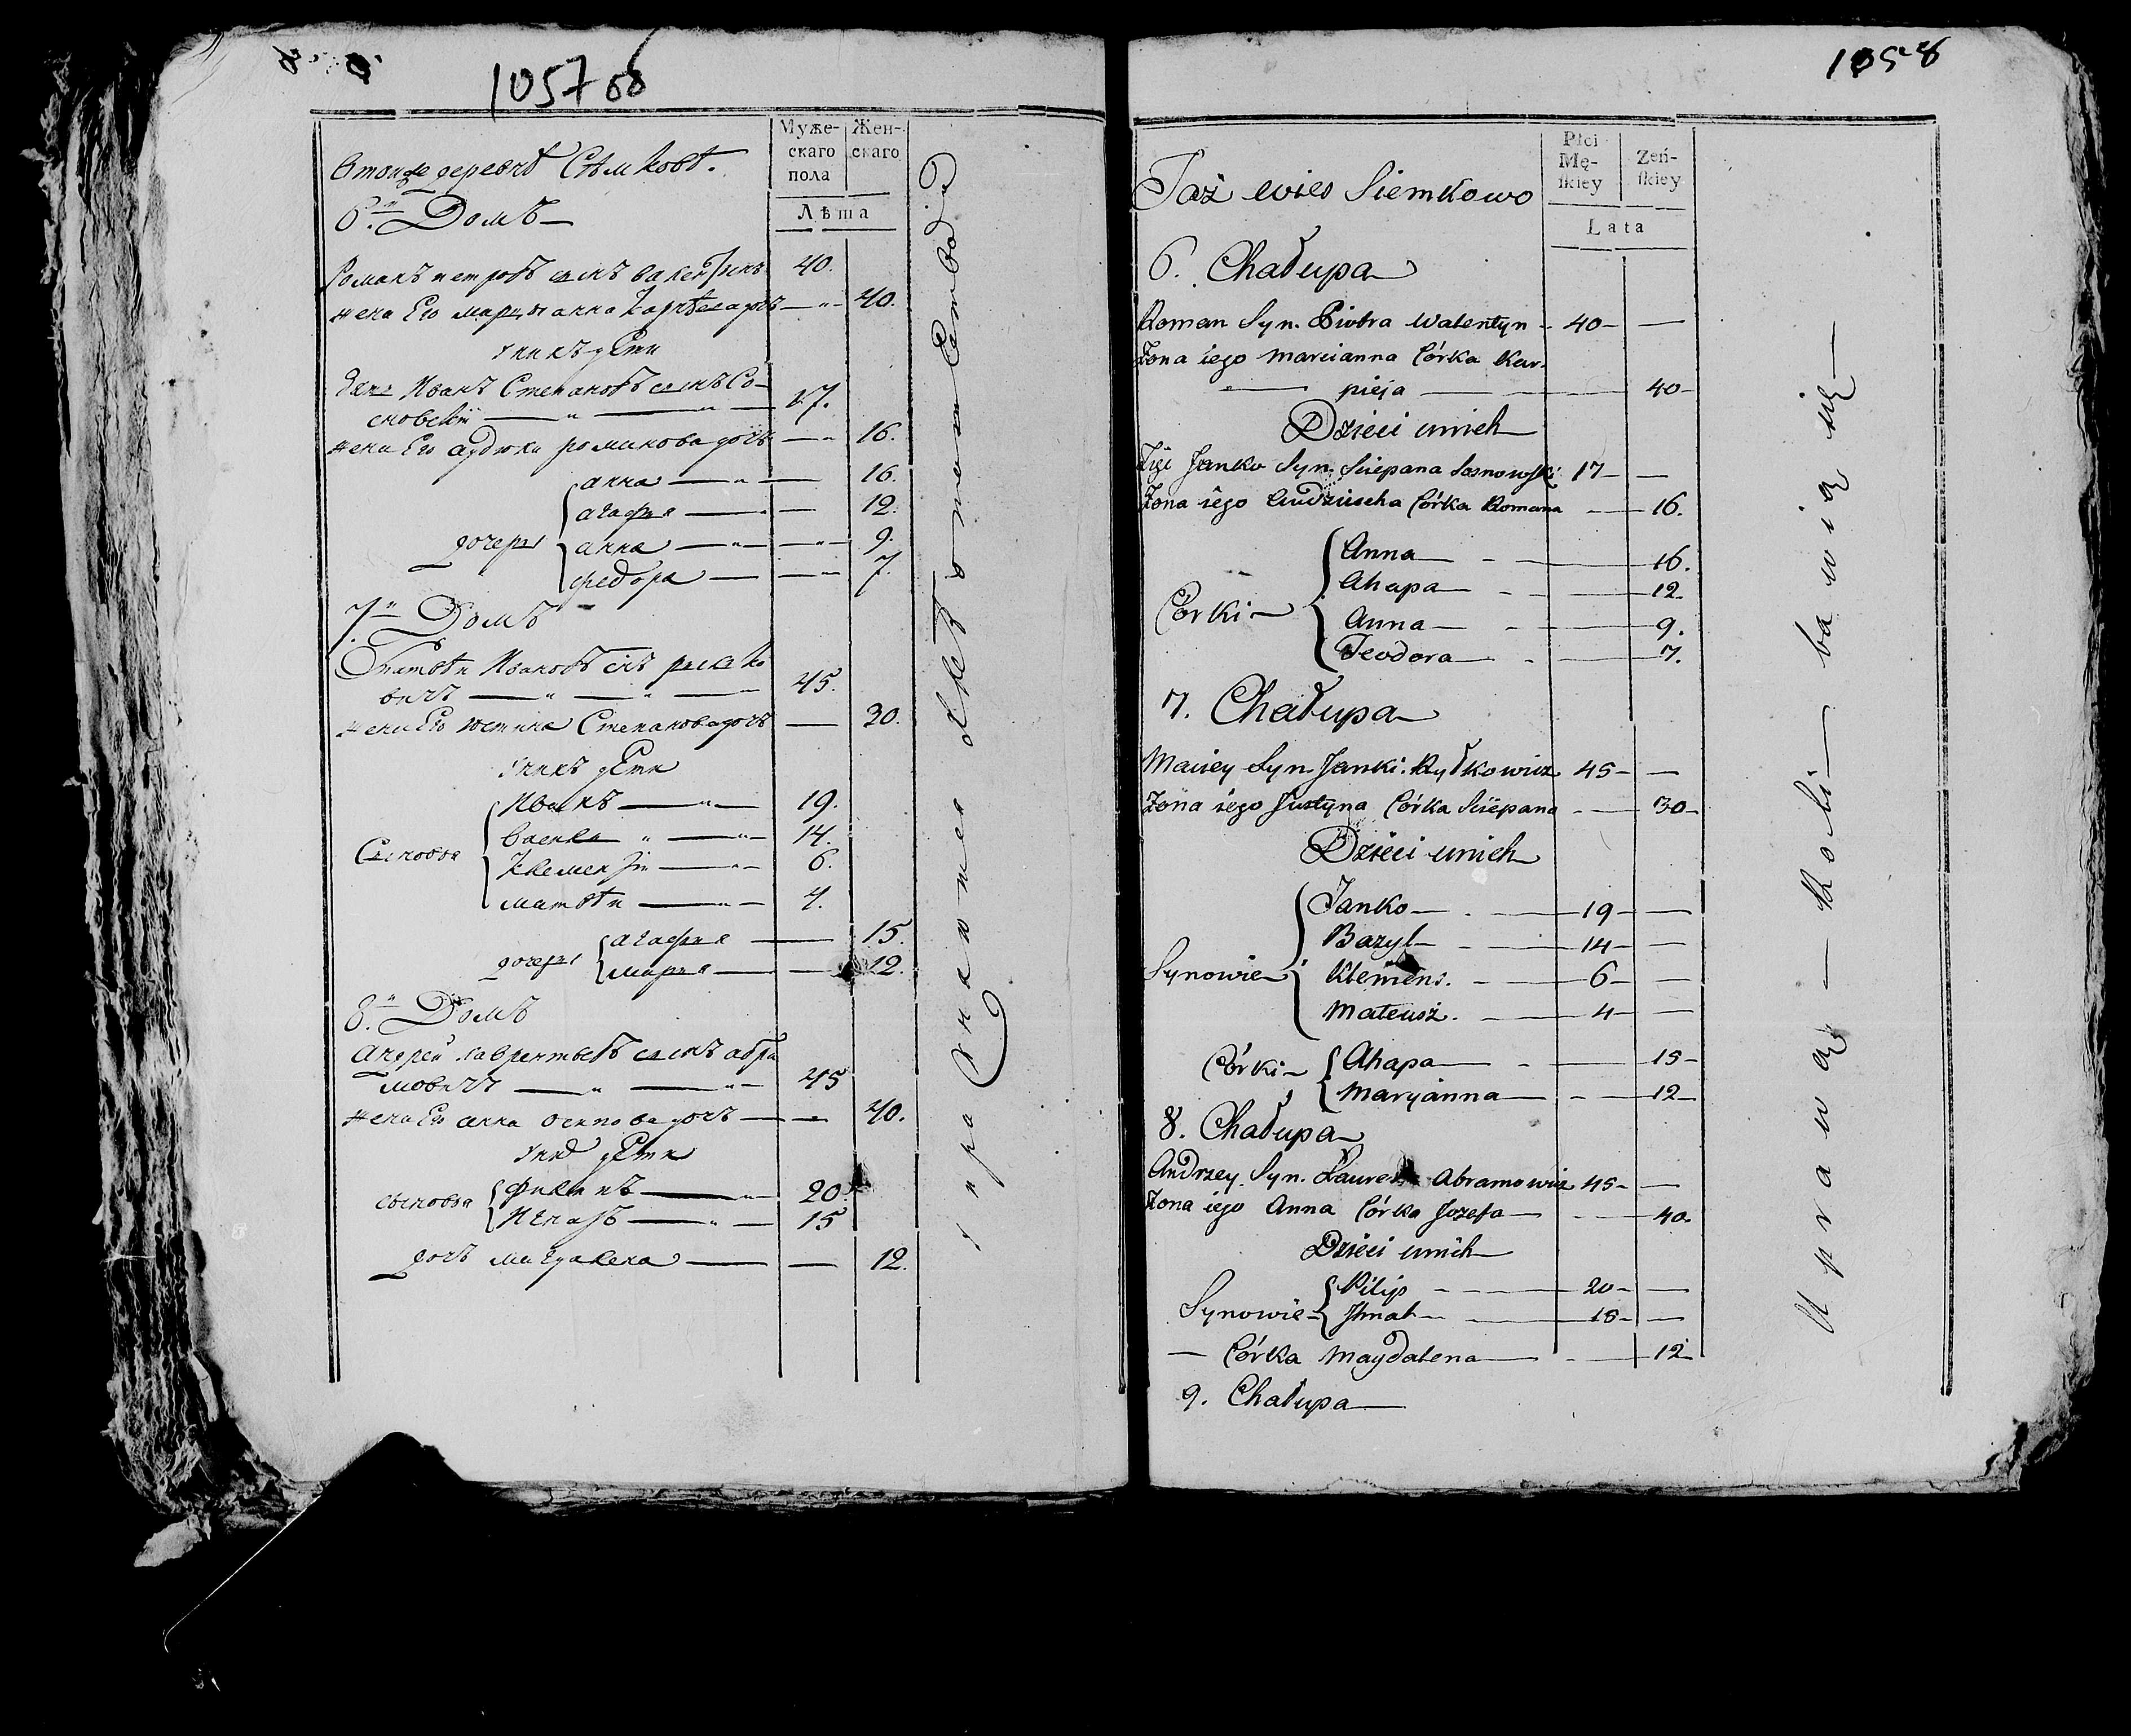 1057 об
Муже-
скаго
пола
Жен-
скаго
Лѣта
В той же деревнѣ Сѣмковѣ.
6.й Домъ
Романъ Петровъ сынъ Валентынъ 40.
жена Его Марцыанна Карпѣева дочь 40.
у нихъ дѣти
Зять Иванъ Степановъ сынъ Со-
сновскій 17.
жена Его Авдюха Романова дочь 16.
дочери
Анна 16.
Агафия 12.
Анна 9.
Федора 7.
7.й Домъ
Матвѣй Ивановъ сынъ
вичъ 45.
жена Его Юстина Степанова дочь 30.
у нихъ дѣти
Сыновья
Иванъ 19.
Василь 14.
Клементій 6.
Матвѣй 4.
дочери
Агафия 15.
Мария 12.
8.й Домъ
Андрей Лаврентьевъ сынъ Абра
мовичъ 45
жена Его Анна Осипова дочь 40.
у нихъ дѣти
сыновья
Филипъ 20
Игнатъ 15
дочь Магдалена 12.
упражняются хлебопашествомъ
1058
Płci
Mę-
ſkiey
Żeń-
ſkiey
Lata
Taż wieś Siemkowo
6. Chałupa
Roman Syn. Piotra Walentyn 40
Żona iego Marcianna Córka Kar-
pieja 40
Dzieci u nich
Zięć Janko Syn. Sciepana Sosnowski 17
Żona iego Audziucha Córka Romana 16.
Córki
Anna 16.
Ahapa 12.
Anna 9.
Teodora 7.
7. Chałupa
Maciey Syn Janki. Ryłkowicz 45
Żona iego Justyna Córka Sciepana 30
Dzieci u nich
Synowie
Janko 19
Bazyl 14
Klemens. 6
Mateusz. 4
Córki
Ahapa 15
Maryanna 12
8. Chałupa
Andrzey Syn. Abramowicz 45
Żona iego Anna Córka Jozefa 40
Dzieci u nich
Synowie
Pilip 20
Ihnat 15
Córka Maydalena 12
9. Chałupa
Uprawą Roli bawią się